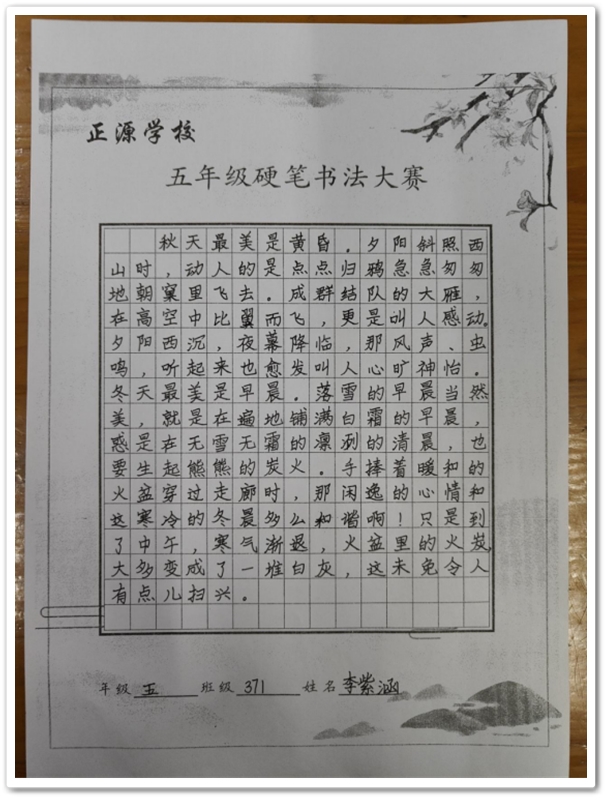 正源学校
五年级硬笔书法大赛
秋天最美是黄昏。夕阳斜照西
山时，动人的是点点归鸦急急匆匆
地朝窠里飞去。成群结队的大雁，
在高空中比翼而飞，更是叫人感动。
夕阳西沉，夜幕降临，那风声、虫
鸣，听起来也愈发叫人心旷神怡。
冬天最美是早晨。落雪的早晨当然
美，就是在遍地铺满白霜的早晨，
惑是在无雪无霜的凛冽的清晨，也
要生起熊熊的炭火。手捧着暖和的
火盆穿过走廊时，那闲逸的心情和
这寒冷的冬晨多么和谐啊！只是到
了中午，寒气渐退，火盆里的火炭，
大多变成了一堆白灰，这未免令人
有点儿扫兴。
年级 五 班级 371 姓名 李紫涵